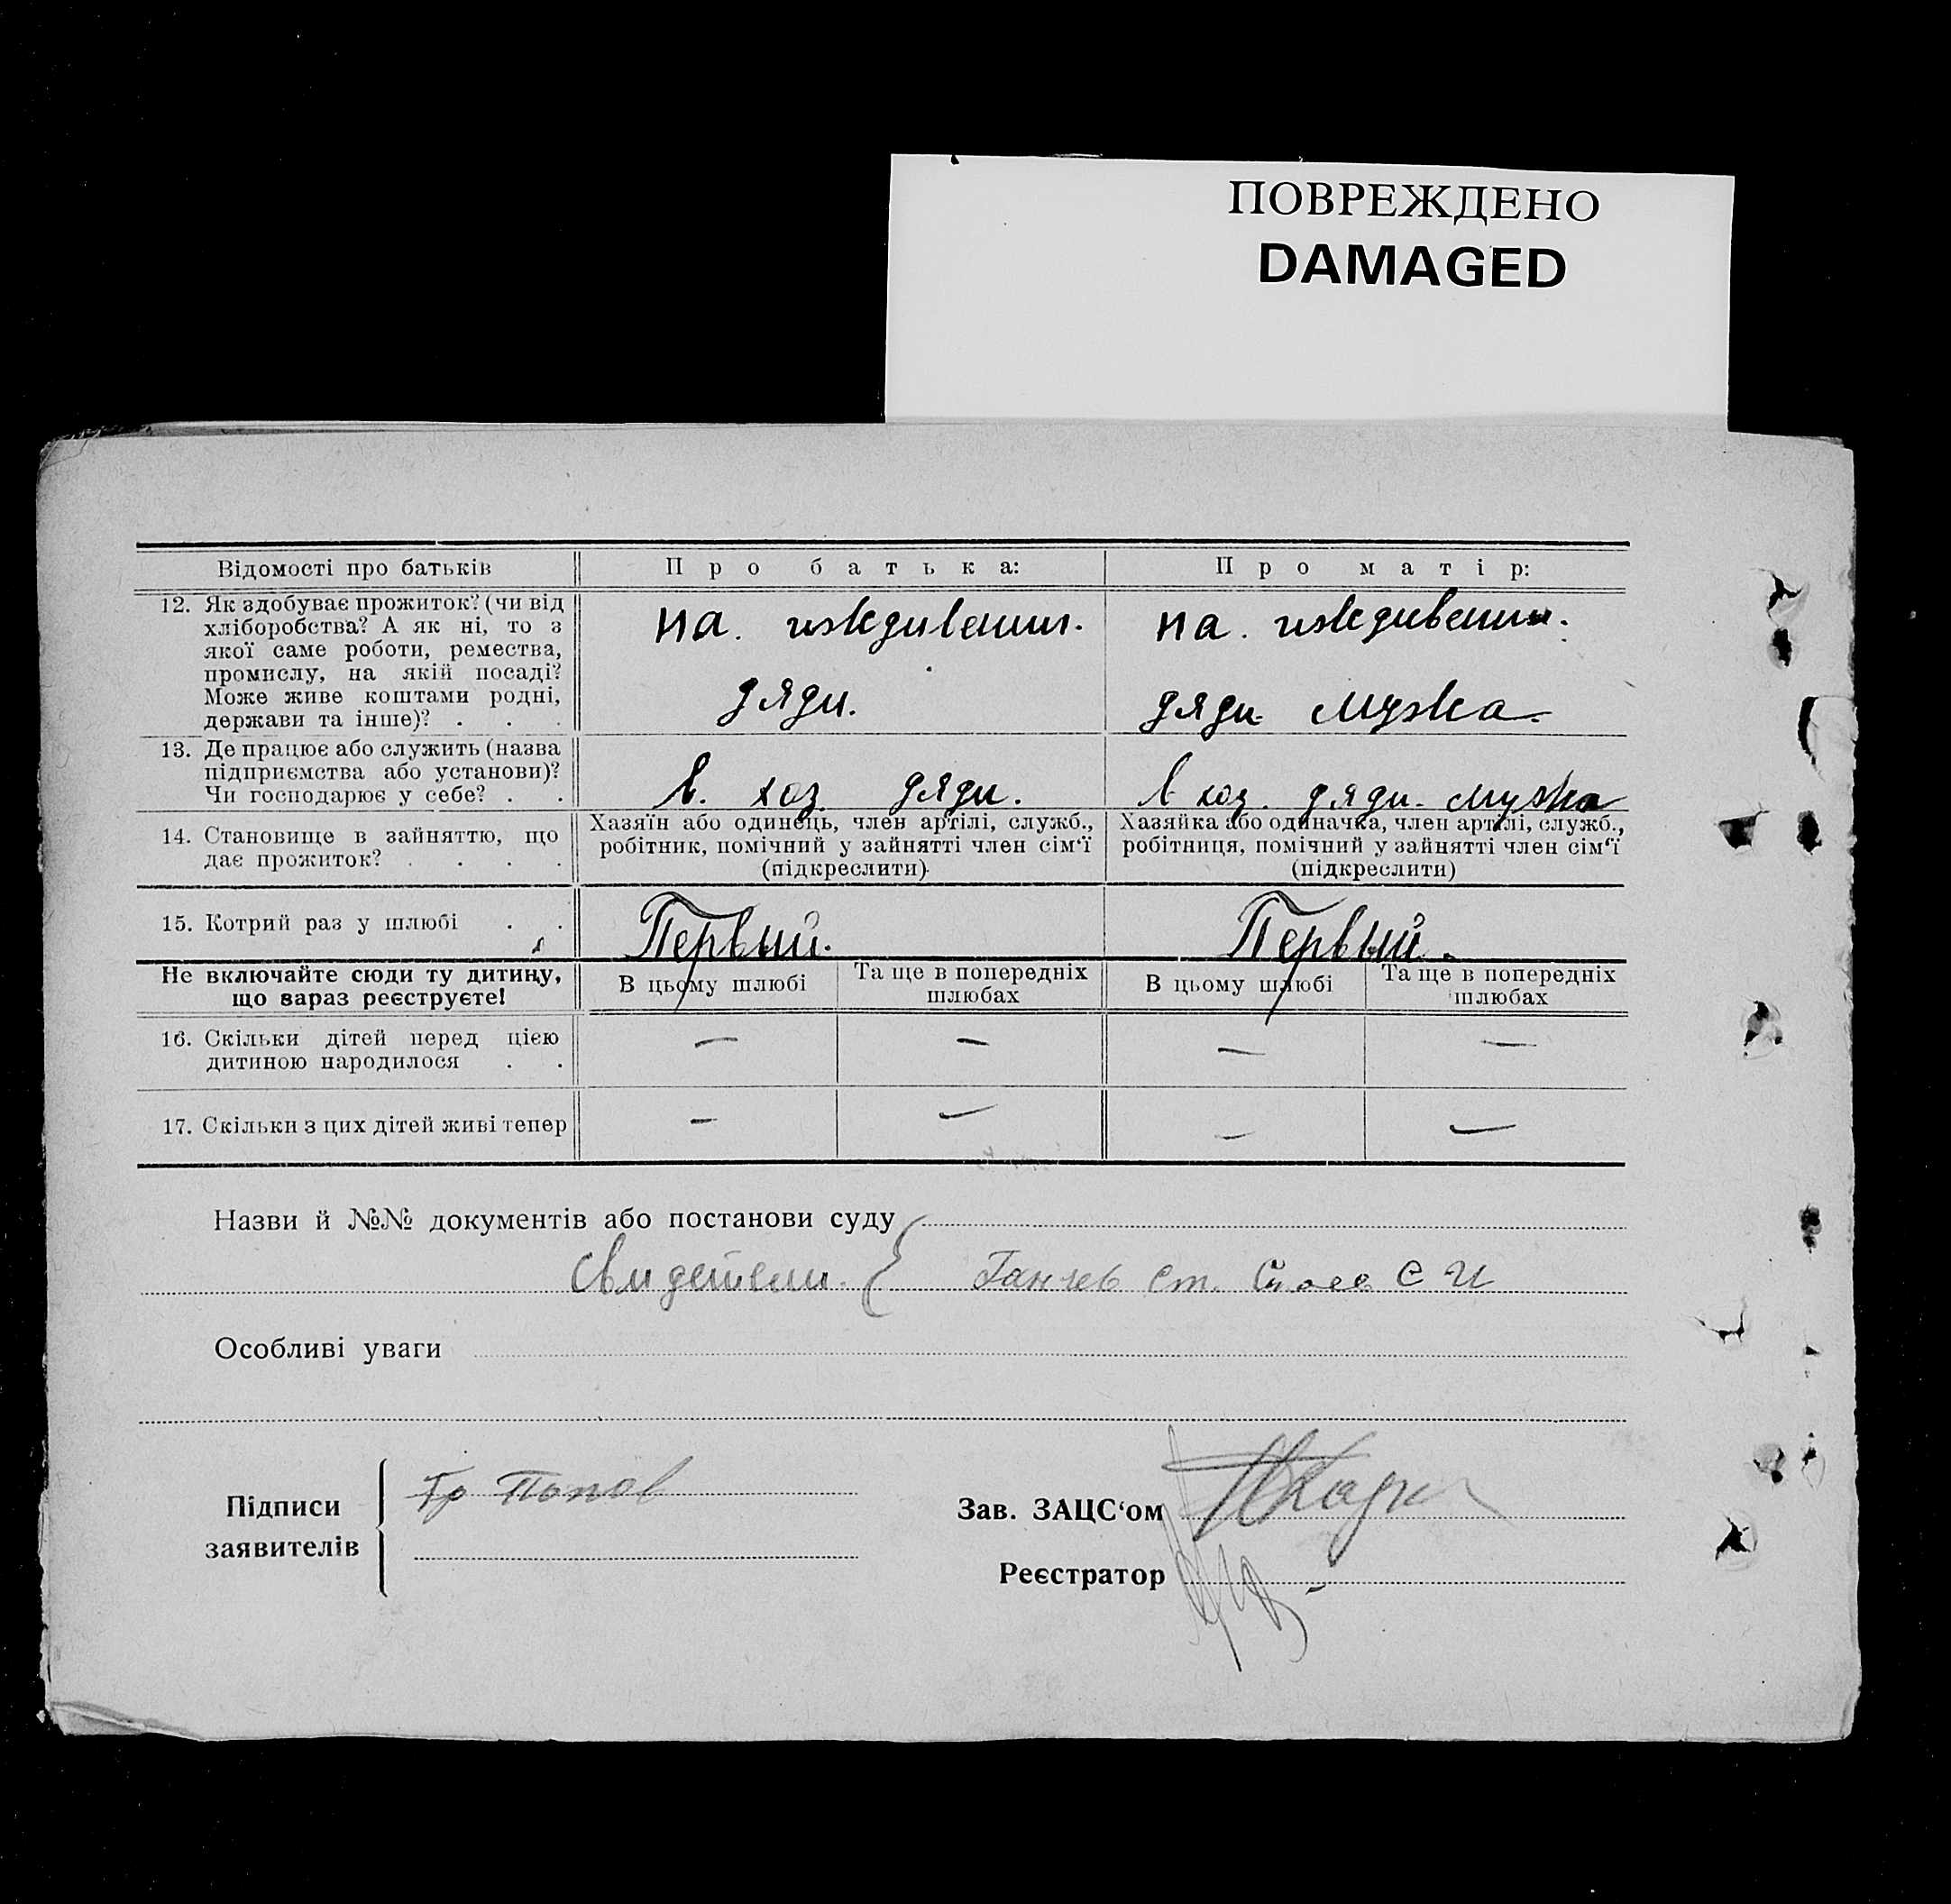 ПОВРЕЖДЕНО
DAMAGED
Відомості про батьків
Про батька:
Про матір:
12. Як здобуває прожиток? (чи від
хліборобства? А як ні, то з
якої саме роботи, ремества,
промислу, на якій посаді?
Може живе коштами родні,
держави та інше)? . . .
на. иждивении.
дяди.
на. иждивении.
дяди мужа.
13. Де працює або служить (назва
підприємства або установи)?
Чи господарює у себе? . .
в. хоз. дяди.
в хоз. дяди. мужа
14. Становище в зайняттю, що
дає прожиток? . . . .
Хазяїн або одинець, член артілі, служб.,
робітник, помічний у зайнятті член сім‘ї
(підкреслити)
Хазяйка або одиначка, член артілі, служб.,
робітниця, помічний у зайнятті член сім‘ї
(підкреслити)
15. Котрий раз у шлюбі . .
Первый.
Первый.
Не включайте сюди ту дитину,
що вараз реєструєте!
В цьому шлюбі
Та ще в попередніх
шлюбах
В цьому шлюбі
Та ще в попередніх
шлюбах
16. Скільки дітей перед цією
дитиною народилося . .
— — — —
17. Скільки з цих дітей живі тепер
— — — —
Назви й №№ документів або постанови суду
Свидетели. { Ганчев Ст. С И
Особливі уваги
Підписи
заявителів
Гр Попов
Зав. ЗАЦС‘ом
Реєстратор